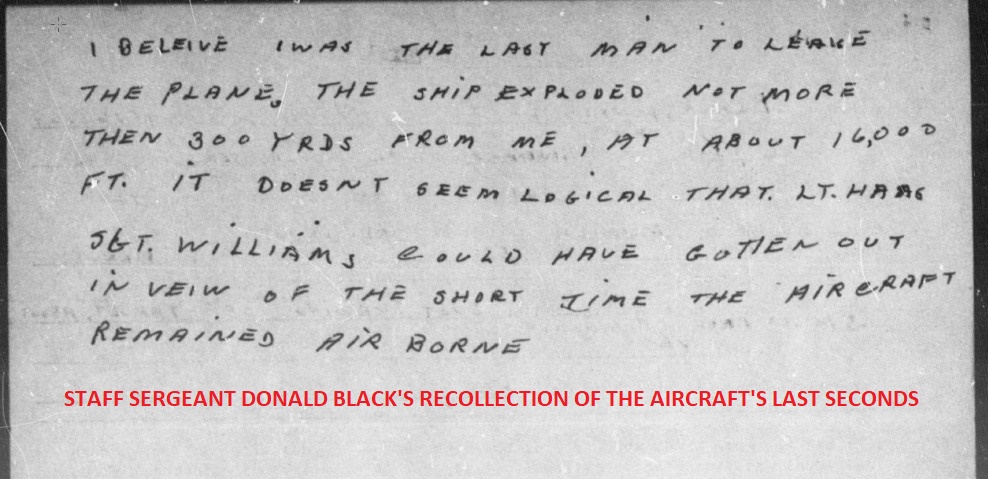 I BELEIVE I WAS THE LAST MAN TO LEAVE
THE PLANE, THE SHIP EXPLODED NOT MORE
THEN 300 YRDS FROM ME, AT ABOUT 16,000
FT. IT DOESNT SEEM LOGICAL THAT. LT. HAAS
SGT. WILLIAMS COULD HAVE GOTTEN OUT
IN VEIW OF THE SHORT TIME THE AIRCRAFT
REMAINED AIR BORNE
STAFF SERGEANT DONALD BLACK'S RECOLLECTION OF THE AIRCRAFT'S LAST SECONDS